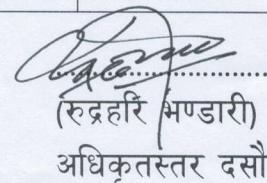 (रुद्रहरि भण्डारी)
अधिकृतस्तर दसौ